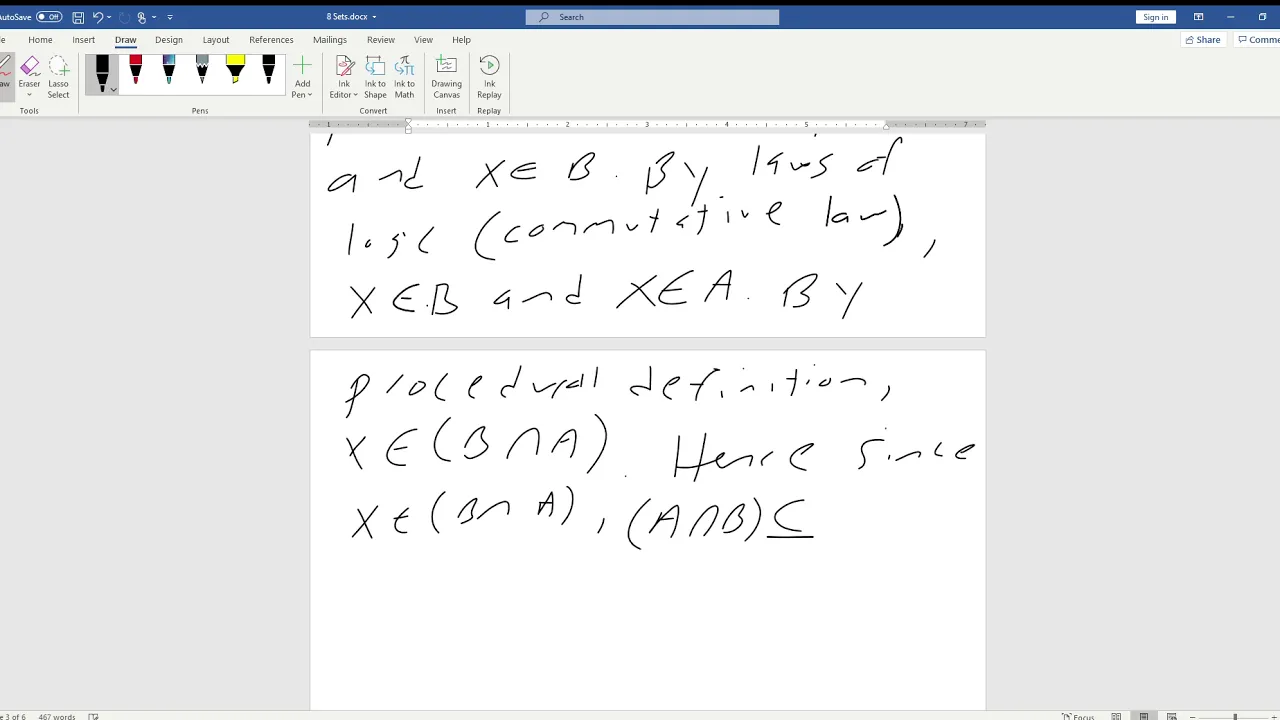 AutoSave Off 8 Sets.docx Search Sign in
Home Insert Draw Design Layout References Mailings Review View Help Share Comme
Eraser Lasso Select Add Pen Ink Editor Ink to Shape Ink to Math Drawing Canvas Ink Replay
Tools Pens Convert Insert Replay
1 1 2 3 4 5 7
and X∈B. By laws of
logic (commutative law),
X∈B and X∈A. By
procedural definition,
X∈(B∩A). Hence since
X∈(B∩A), (A∩B)⊆
e 3 of 6 467 words Focus